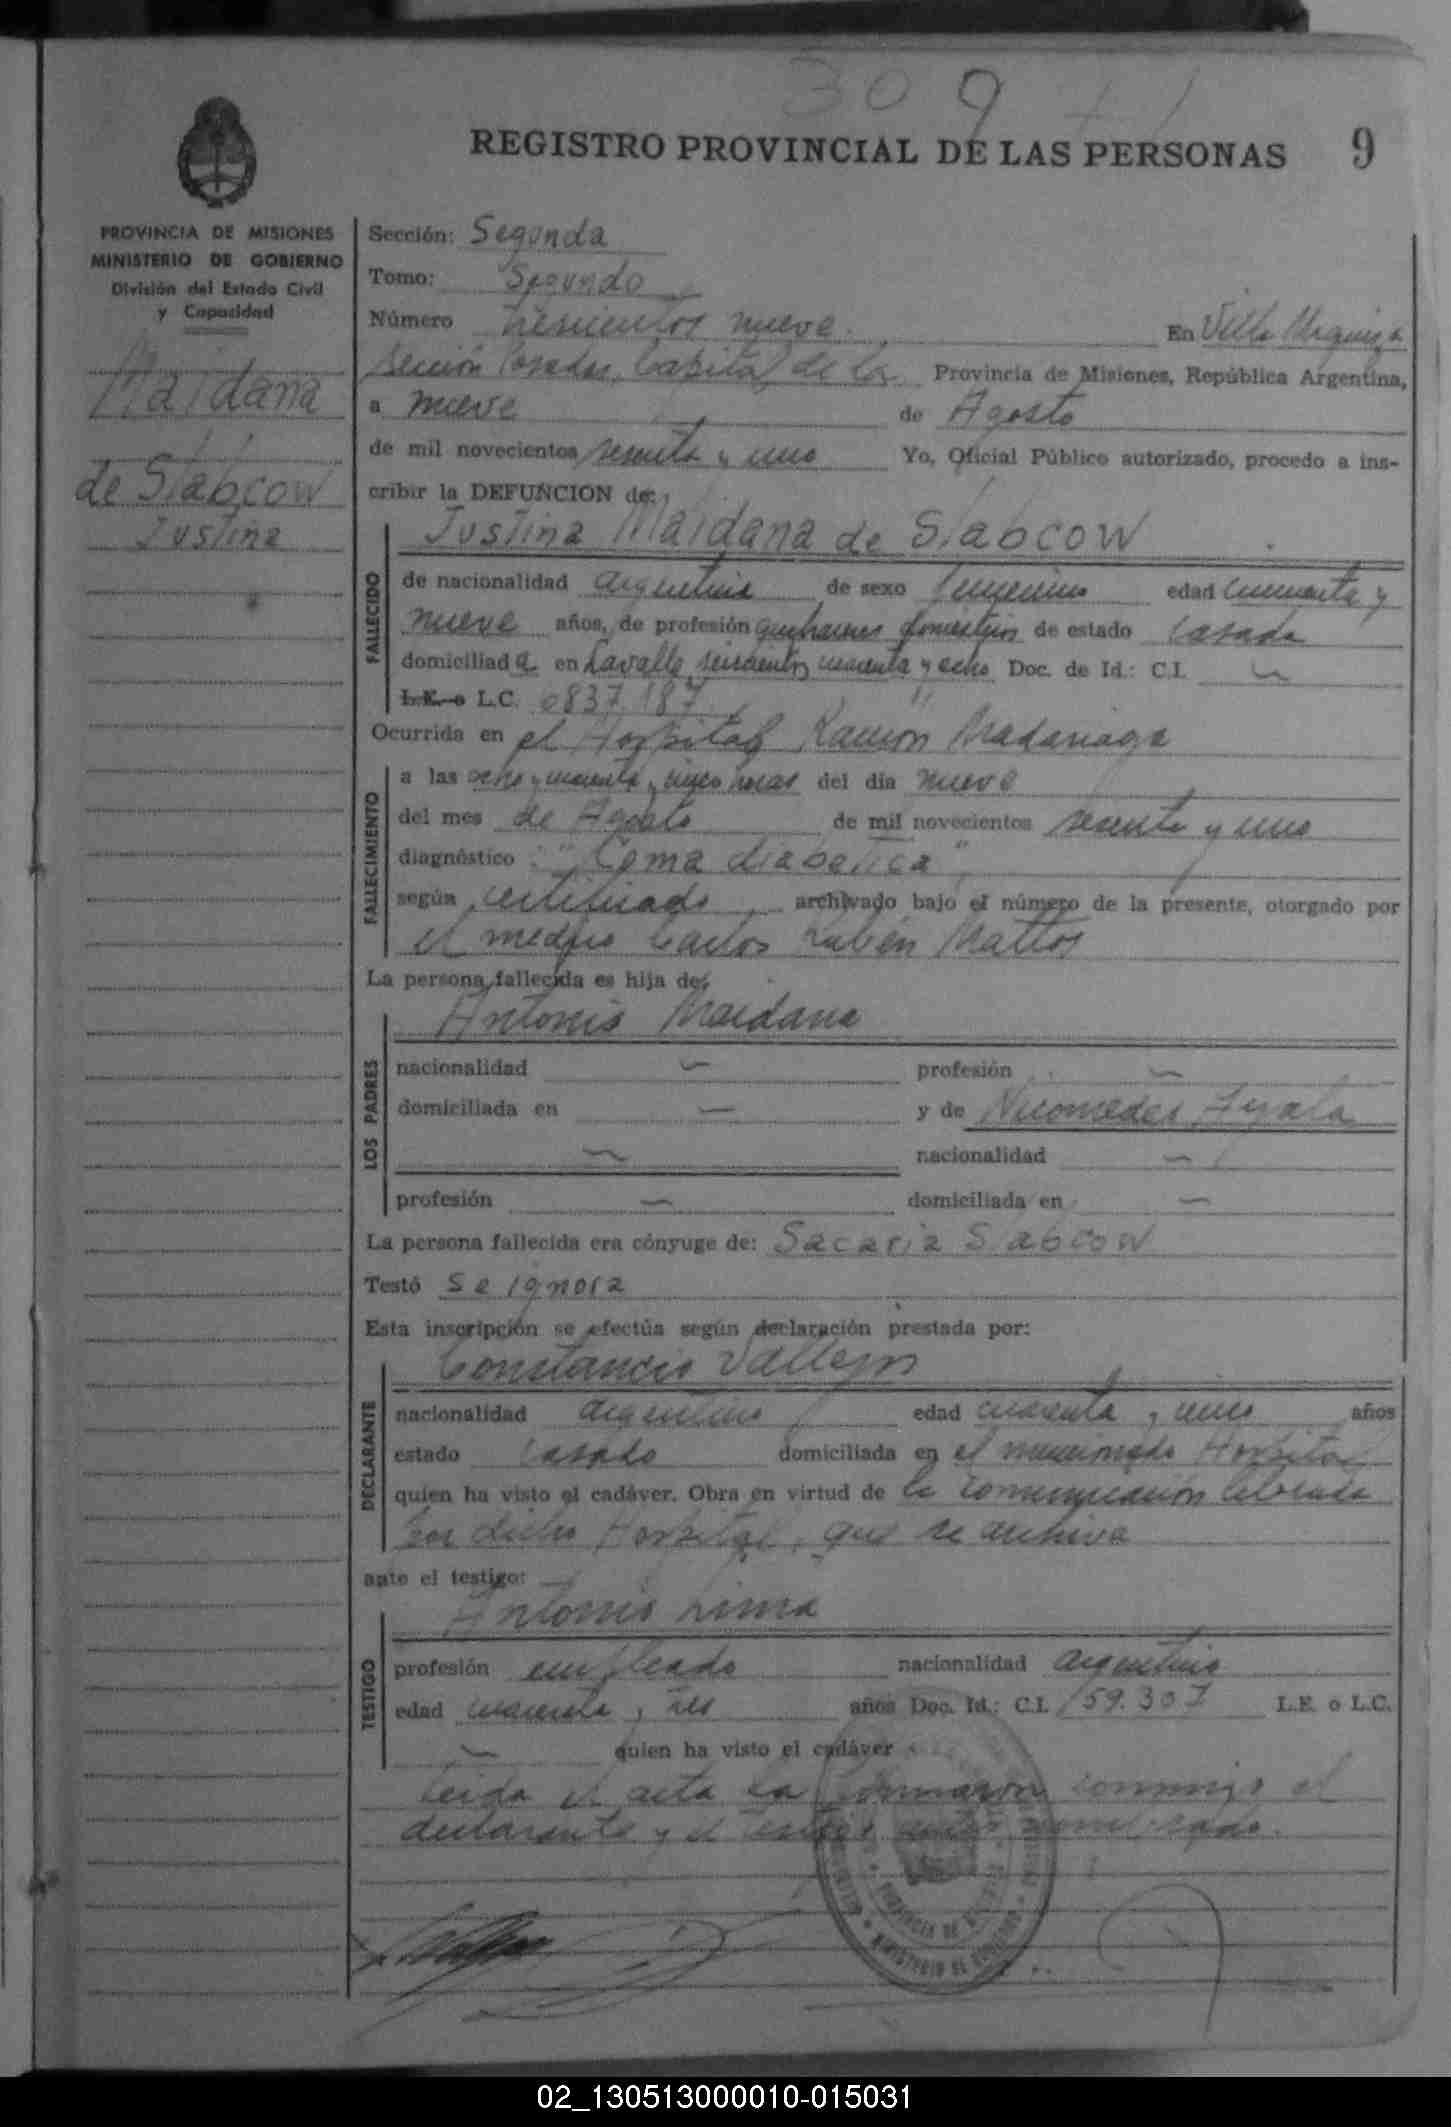 309
REGISTRO PROVINCIAL DE LAS PERSONAS 9
PROVINCIA DE MISIONES
MINISTERIO DE GOBIERNO
División del Estado Civil
y Capacidad
Maidana
de Slabcow
Justina
Sección: Segunda
Tomo: Segundo
Número trescientos nueve. En Villa Urquiza
Sección Posadas, Capital de la Provincia de Misiones, República Argentina,
a nueve de Agosto
de mil novecientos sesenta y uno Yo, Oficial Público autorizado, procedo a ins-
cribir la DEFUNCION de:
Justina Maidana de Slabcow
FALLECIDO
de nacionalidad argentina de sexo femenino edad cincuenta y
nueve años, de profesión quehaceres domésticos de estado casada
domiciliada en Lavalle seiscientos cuarenta y ocho Doc. de Id.: C.I. —
L.E. o L.C. 0837.187
Ocurrida en el Hospital Ramón Madariaga
FALLECIMIENTO
a las ocho y cuarenta y cinco horas del día nueve
del mes de Agosto de mil novecientos sesenta y uno
diagnóstico : "Coma diabetica",
según certificado archivado bajo el número de la presente, otorgado por
el medico Carlos Rubén Mattos
La persona fallecida es hija de:
Antonio Maidana
LOS PADRES
nacionalidad — profesión —
domiciliada en — y de Nicomedes Ayala
— nacionalidad —
profesión — domiciliada en —
La persona fallecida era cónyuge de: Sacaria Slabcow
Testó se ignora
Esta inscripción se efectúa según declaración prestada por:
Constancio Vallejos
DECLARANTE
nacionalidad argentino edad cuarenta y uno años
estado casado domiciliada en el mencionado Hospital
quien ha visto el cadáver. Obra en virtud de la comunicación librada
por dicho Hospital, que se archiva
ante el testigo:
Antonio Lima
TESTIGO
profesión empleado nacionalidad argentino
edad cuarenta y tres años Doc. Id.: C.I. 159.307 L.E. o L.C.
— quien ha visto el cadáver
Leida el acta la firmaron conmigo el
declarante y el testigo antes nombrado.
PROVINCIA DE MISIONES
MINISTERIO DE GOBIERNO
02_130513000010-015031